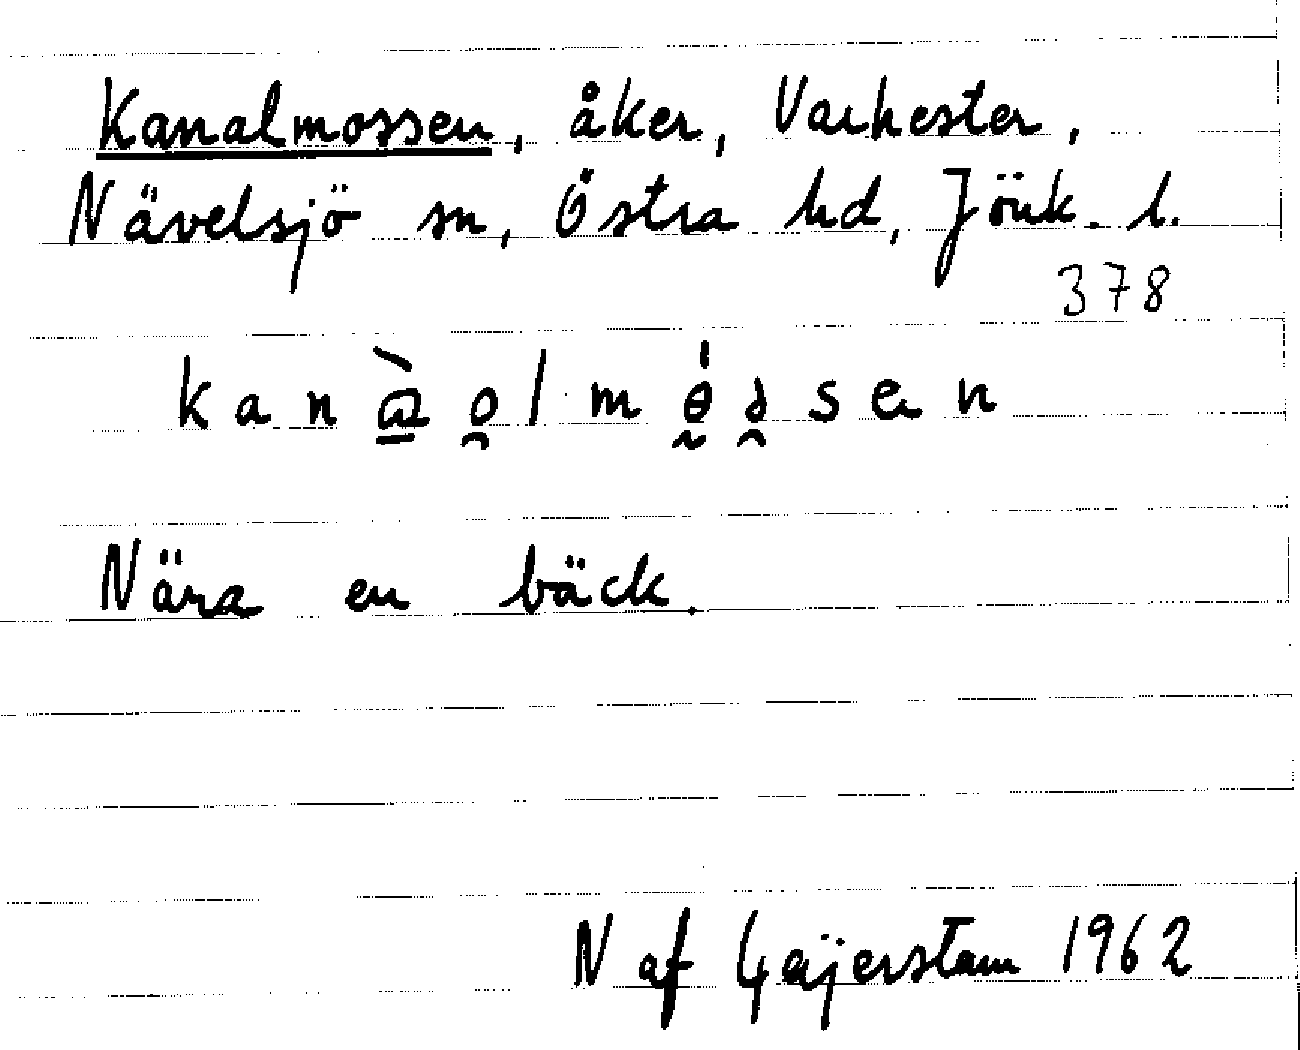 Kanalmossen, åker, Vackester,
Nävelsjö sn, Östra hd, Jönk. l.
378
Nära en bäck.
N af Gejerstam 1962